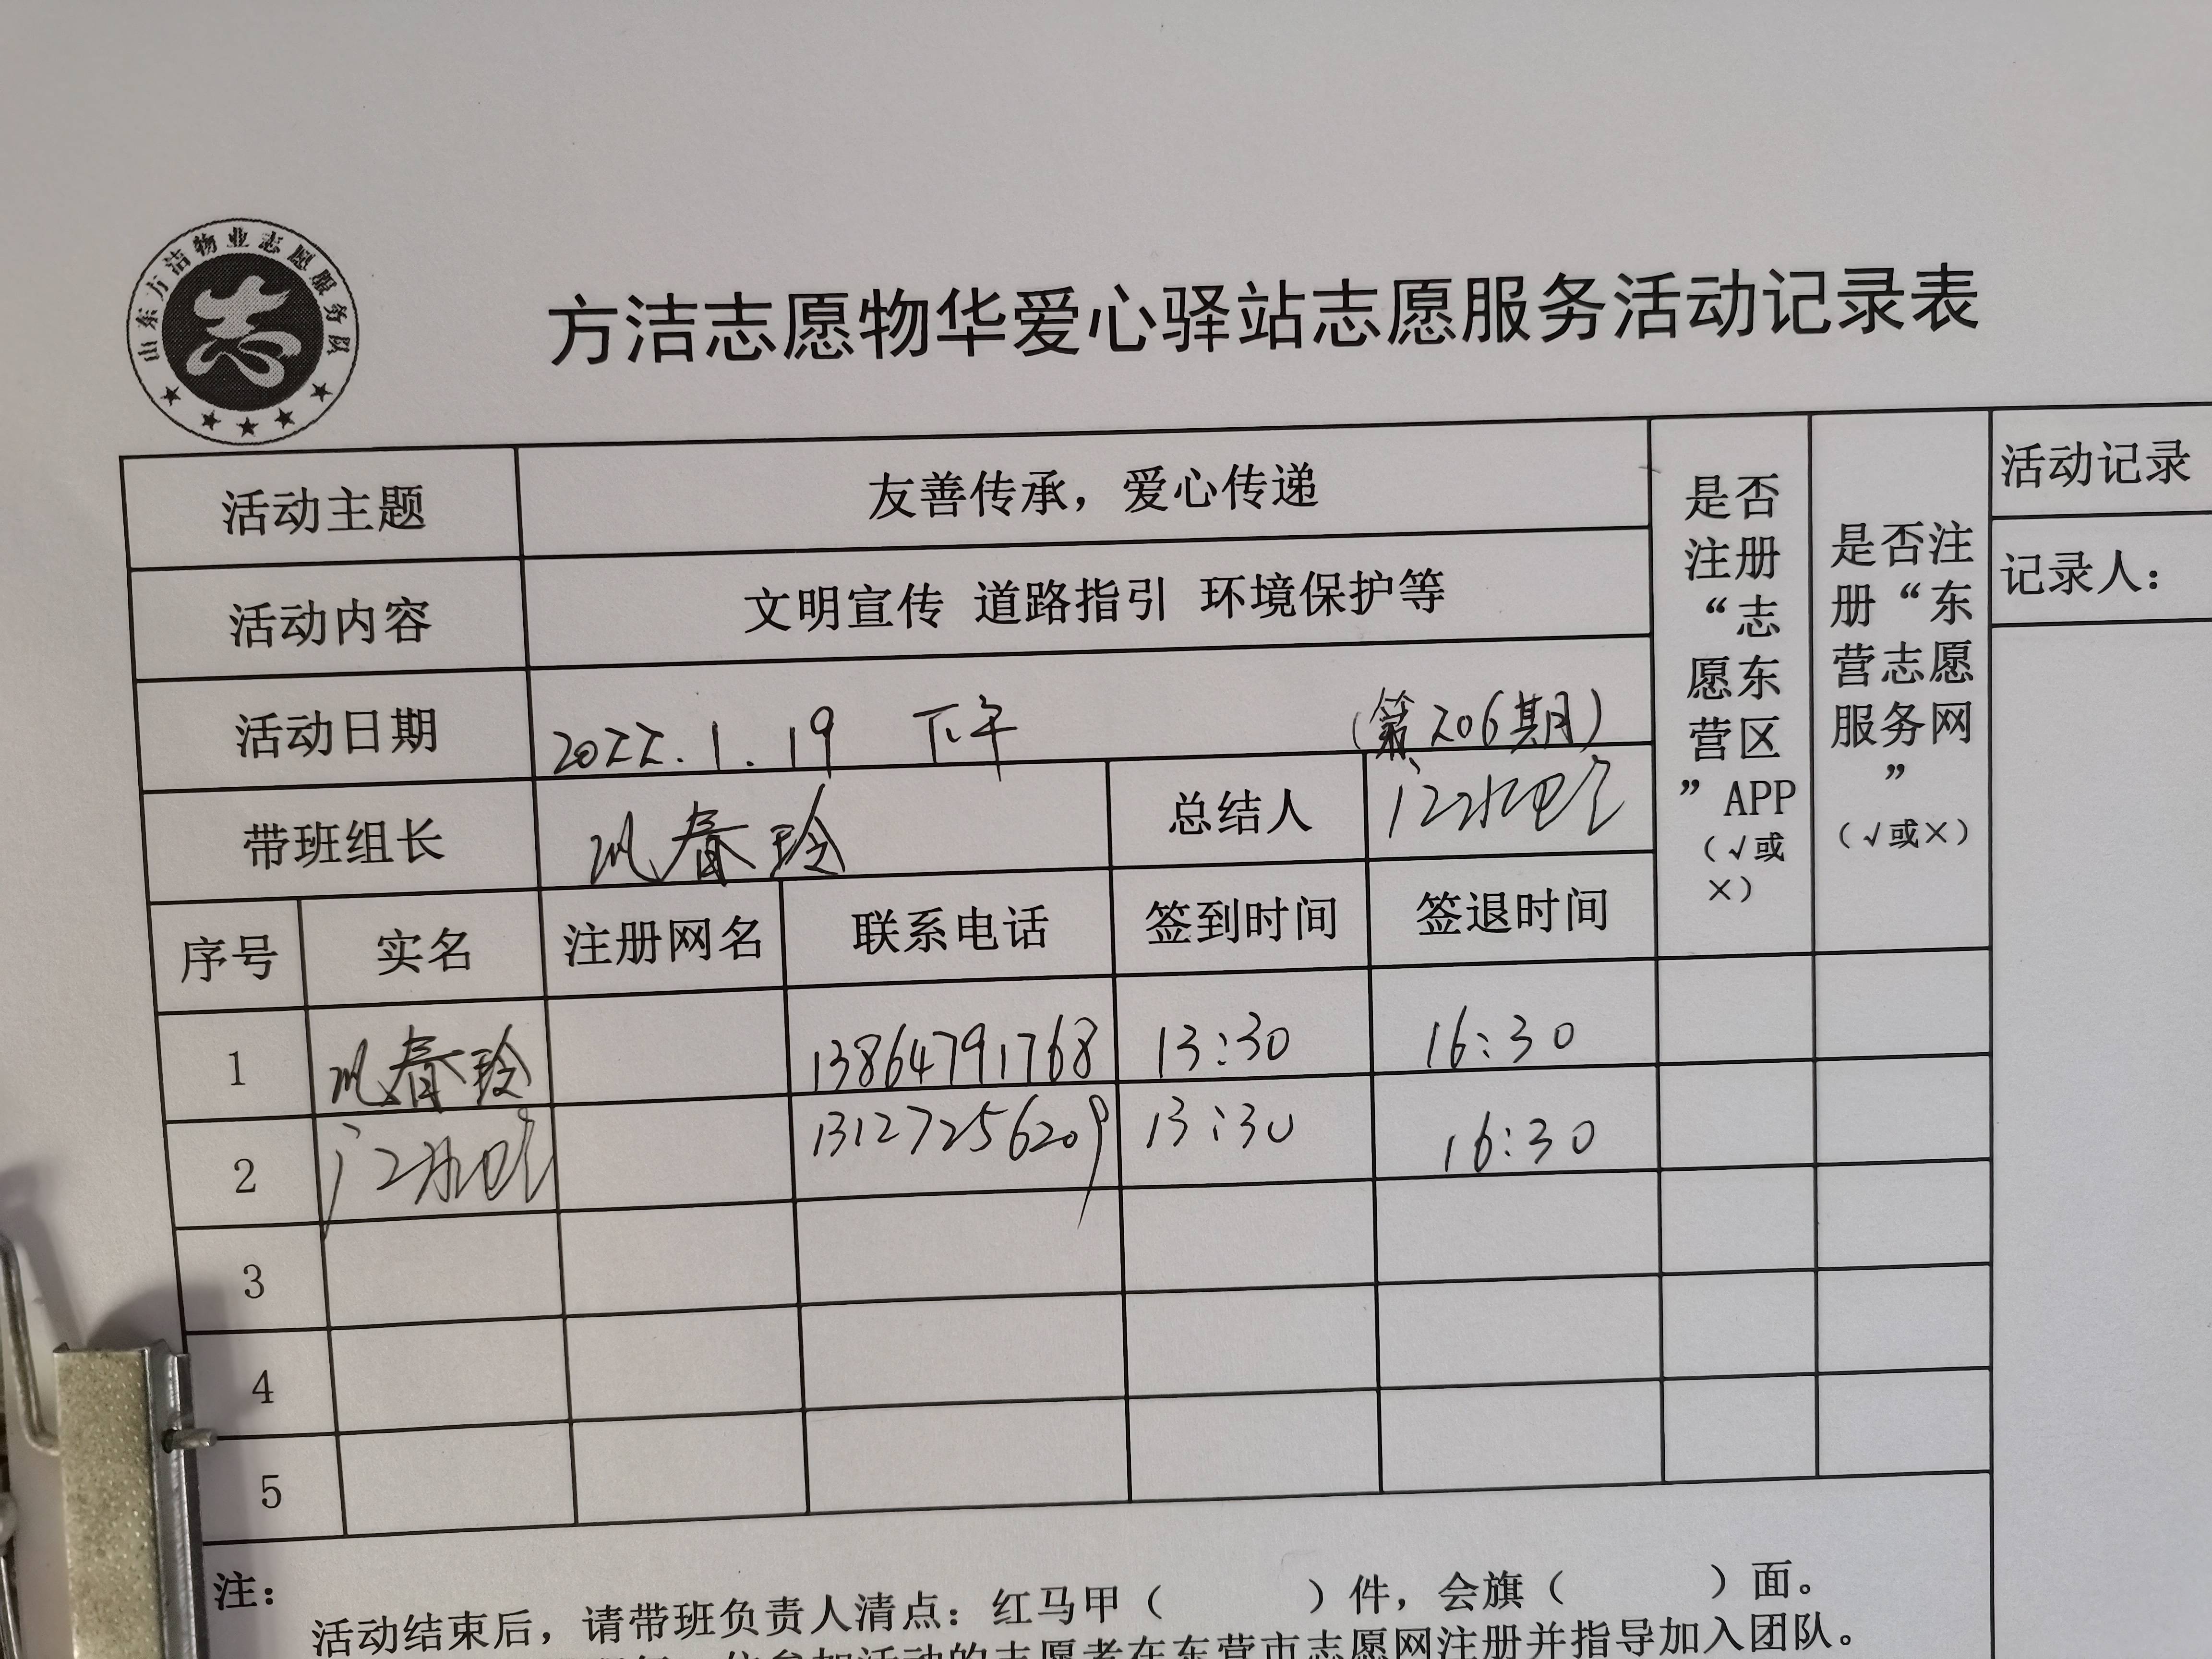 山东方洁物业志愿服务队
方洁志愿物华爱心驿站志愿服务活动记录表
活动主题 友善传承，爱心传递
活动内容 文明宣传 道路指引 环境保护等
活动日期 2022.1.19 下午 （第206期）
带班组长 春玲 总结人
序号 实名 注册网名 联系电话 签到时间 签退时间
是否
注册
“志
愿东
营区
”APP
（√或
×）
是否注
册“东
营志愿
服务网
”
（√或×）
活动记录
记录人：
1 春玲 13864791768 13:30 16:30
2 13127256209 13:30 16:30
3
4
5
注：
活动结束后，请带班负责人清点：红马甲（ ）件，会旗（ ）面。
参加活动的志愿者在东营市志愿网注册并指导加入团队。